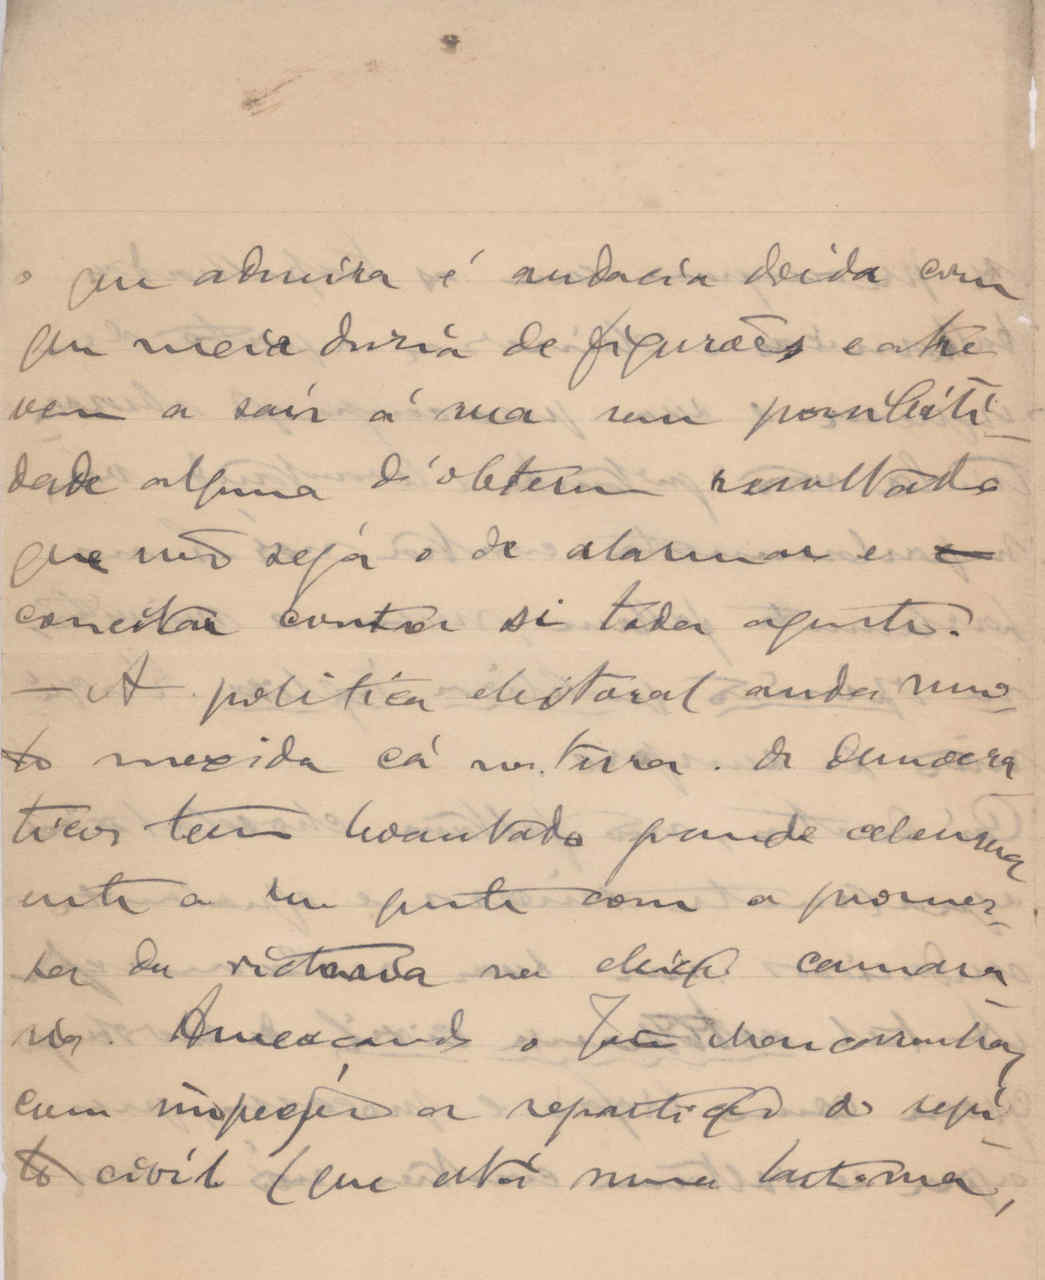 o que admira é audacia doida com
que meia duzia de figurões e atre
vem a sair á rua sem possibili-
dade alguma d'obterem resultado
que não seja o de alarmar e
concitar contra si toda agente.
— A politica eleitoral anda mui-
to mexida cá na terra. Os democra
ticos tem levantado grande celeuma
entre a sua gente com a promes-
sa da victoria na eleição camara-
ria. Ameaçando o
com inspeção a repartição do regis-
to civil (que está numa lastima,